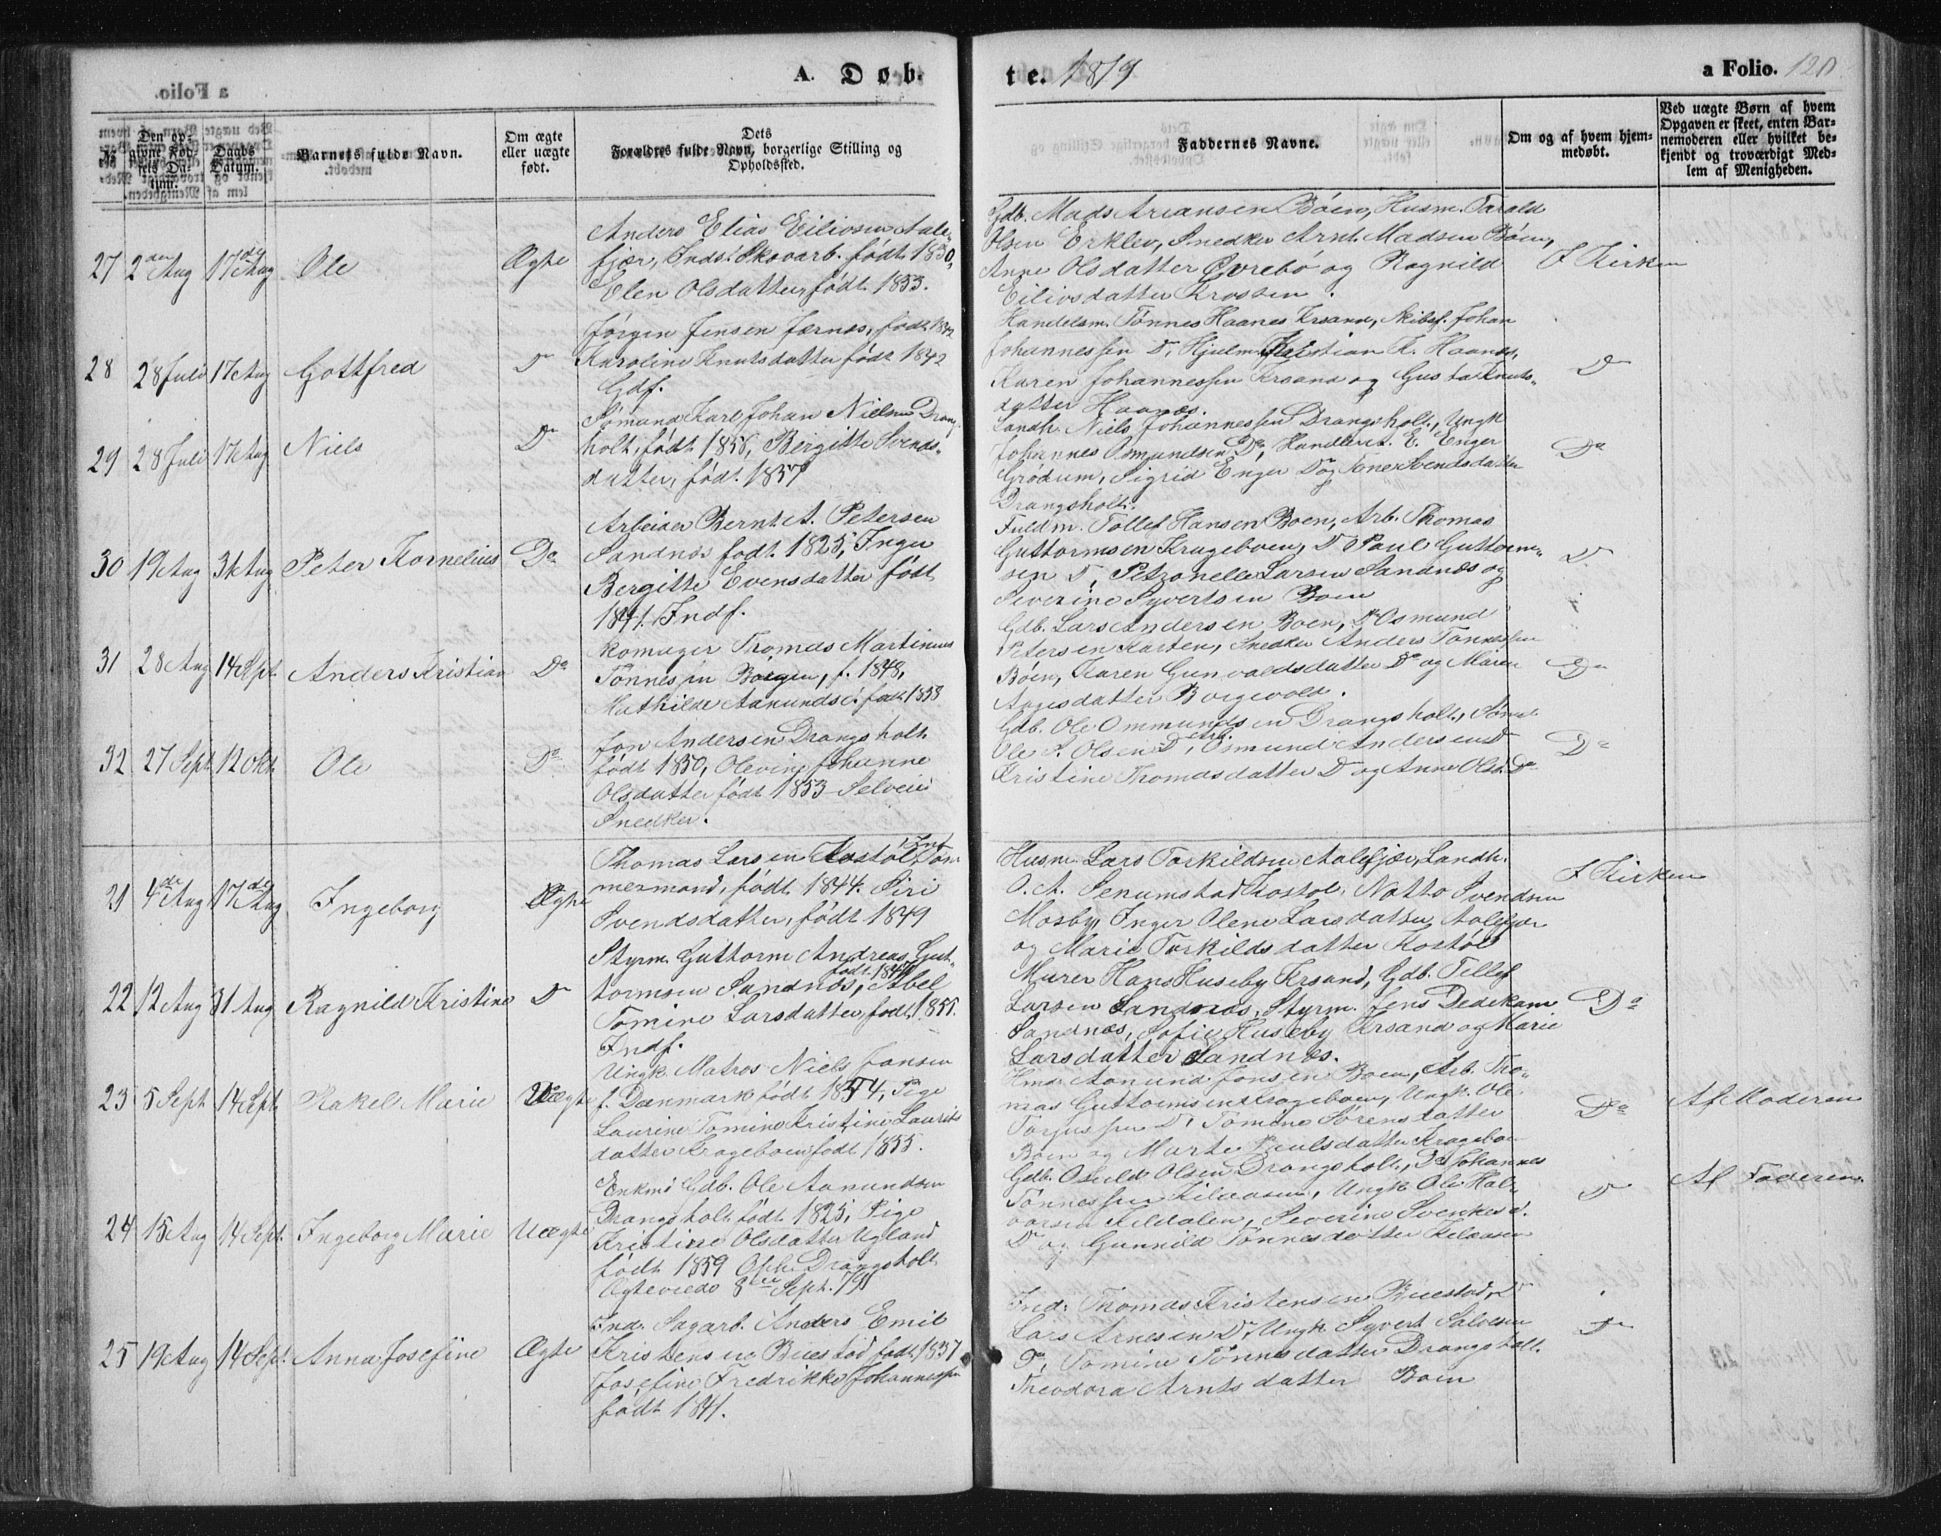 A. Døb
te. 1879
a Folio. 120
No
Den opgivne Fødsels Datum.
Daabs Datum.
Barnets fulde Navn.
Om ægte eller uægte født.
Dets Forældres fulde Navn, borgerlige Stilling og Opholdssted.
Faddernes Navne.
Om og af hvem hjemmedøbt.
Ved uægte Børn af hvem
Opgaven er skeet, enten Bar-
nemoderen eller hvilket be-
kjendt og troværdigt Med-
lem af Menigheden.
27 2den Aug 17de Aug Ole Ægte
Anders Elias Eilivsen Aale-
fjær, Inds. Skovarb. født 1850,
Elen Olsdatter, født 1853.
Gdb. Mads Ariansen Böen, Husm. Tarald
Olsen Erklev, Snedker Arnt Madsen Böen,
Anne Olsdatter Øvrebö og Ragnild
Eilivsdatter Krossen.
I Kirken
28 28 Juli 17 Aug Gottfred Do
Jörgen Jensen Færnæs, født 1842
Karoline Knutsdatter født 1842
Gdf.
Handelsm. Tönnes Haanes Krsand, Skibsf. Johan
Johannessen Do, Hjelm Kristian K. Haanæs,
Karen Johannessen Krsand og Gusta Knuts-
datter Haanæs.
Do
29 28 Juli 17 Aug Niels Do
Sömand Karl Johan Nielsen Drang-
holt, født 1856, Bergitte Svends-
datter, född. 1857
Landh. Niels Johannessen Drangsholt, Ungk
Johannes Osmundsen Do, Handlende E. Enger
Grödum, Sigrid Enger Do og Tone Svendsdatter
Drangsholt.
Do
30 19 Aug 31 Aug Peter Kornelius Do
Arbeider Bernt A. Petersen
Sandnæs født 1825, Inger
Bergitte Evensdatter født
1841. Indf.
Fuldm. Tollef Hansen Boen, Arb. Thomas
Guttormsen Krageboen, Do Paul Guttorm-
sen Do, Petronelle Larsen Sandnæs og
Severine Syvertsen Boen
Do
31 28 Aug 14 Sept. Anders Kristian Do
Skomager Thomas Martinius
Tönnessen Böigen, f. 1848,
Mathilde Aanunds. født 1853
Gdb. Lars Andersen Boen, Do Osmund
Petersen Karten, Snedker Anders Tönnessen
Böen, Karen Gunvaldsdatter Do og Maren
Aagesdatter Borgevold.
Do
32 27 Sept 12 Okt. Ole Do
Jon Andersen Drangsholt
født 1850, Olevine Johanne
Olsdatter født 1853 Selveier
Snedker.
Gdb. Ole Ommundsen Drangsholt, Sömd.
Ole P. Olsen Do, Osmund Andersen Do
Kristine Thomasdatter Do og Anne Olsd. Do
Do
21 4de Aug 17de Aug Ingeborg Ægte
Thomas Larsen Kostöl Töm
mermand, født 1844. Siri
Svendsdatter, født 1849
Husm. Lars Torkildsen Aalefjær, Landh.
O. A. Senumstad Kostöl, Natto Svendsen
Mosby, Inger Olene Larsdatter Aalefjær
og Marie Torkildsdatter Kostöl
I Kirken
22 12 Aug 31 Aug Ragnild Kristine Do
Styrm. Guttorm Andreas Gut-
tormsen Sandnæs, Abel
Tomine Larsdatter, født 1855.
Indf.
Murer Hans Huseby Krsand, Gdb. Tellef
Larsen Sandnæs, Styrm. Jens Dedekam
Sandnæs, Sofie Huseby Krsand og Marie
Larsdatter Sandnæs.
Do
23 5 Sept 14 Sept. Rakel Marie Uægte
Ungk. Matros Niels Jansen
f. Danmark født 1854, Pige
Laurine Tomine Kristine Laurits
datter Krageboen født 1855.
Hmd. Aanund Jonsen Boen, Arb. Tho-
mas Guttormsen Krageboen, Ungk. Ole
Torjussen Do, Tomine Sörensdatter
Boen og Marte Paulsdatter Krageboen
Do
Af Moderen
24 15 Aug 14 Sept. Ingeborg Marie Uægte
Enkmd Gdb. Ole Aanundsen
Drangsholt født 1825, Pige
Kristine Olsdatter Ugland
født 1859 Oph. Drangsholt
Ægteviede 8de Sept. 79
Gdb. Osuld Olsen Drangsholt, Do Johannes
Tönnessen Kileaasen, Ungk Ole Hal-
vorsen Kildalen, Severine Svenkesd.
Do og Gunnild Tönnesdatter Kileaasen
Do
Af Faderen
25 19 Aug 14 Sept. Anna Josefine Ægte
Ind. Sagarb. Anders Emil
Kristensen Buestad født 1837
Josefine Fredrikke Johannessen
født 1841.
Ind. Thomas Kristensen Buestad, Do
Lars Arnesen Do, Ungk. Syvert Salvesen
Do, Tomine Tönnesdatter Drangsholt.
Theodora Arntsdatter Boen
Do